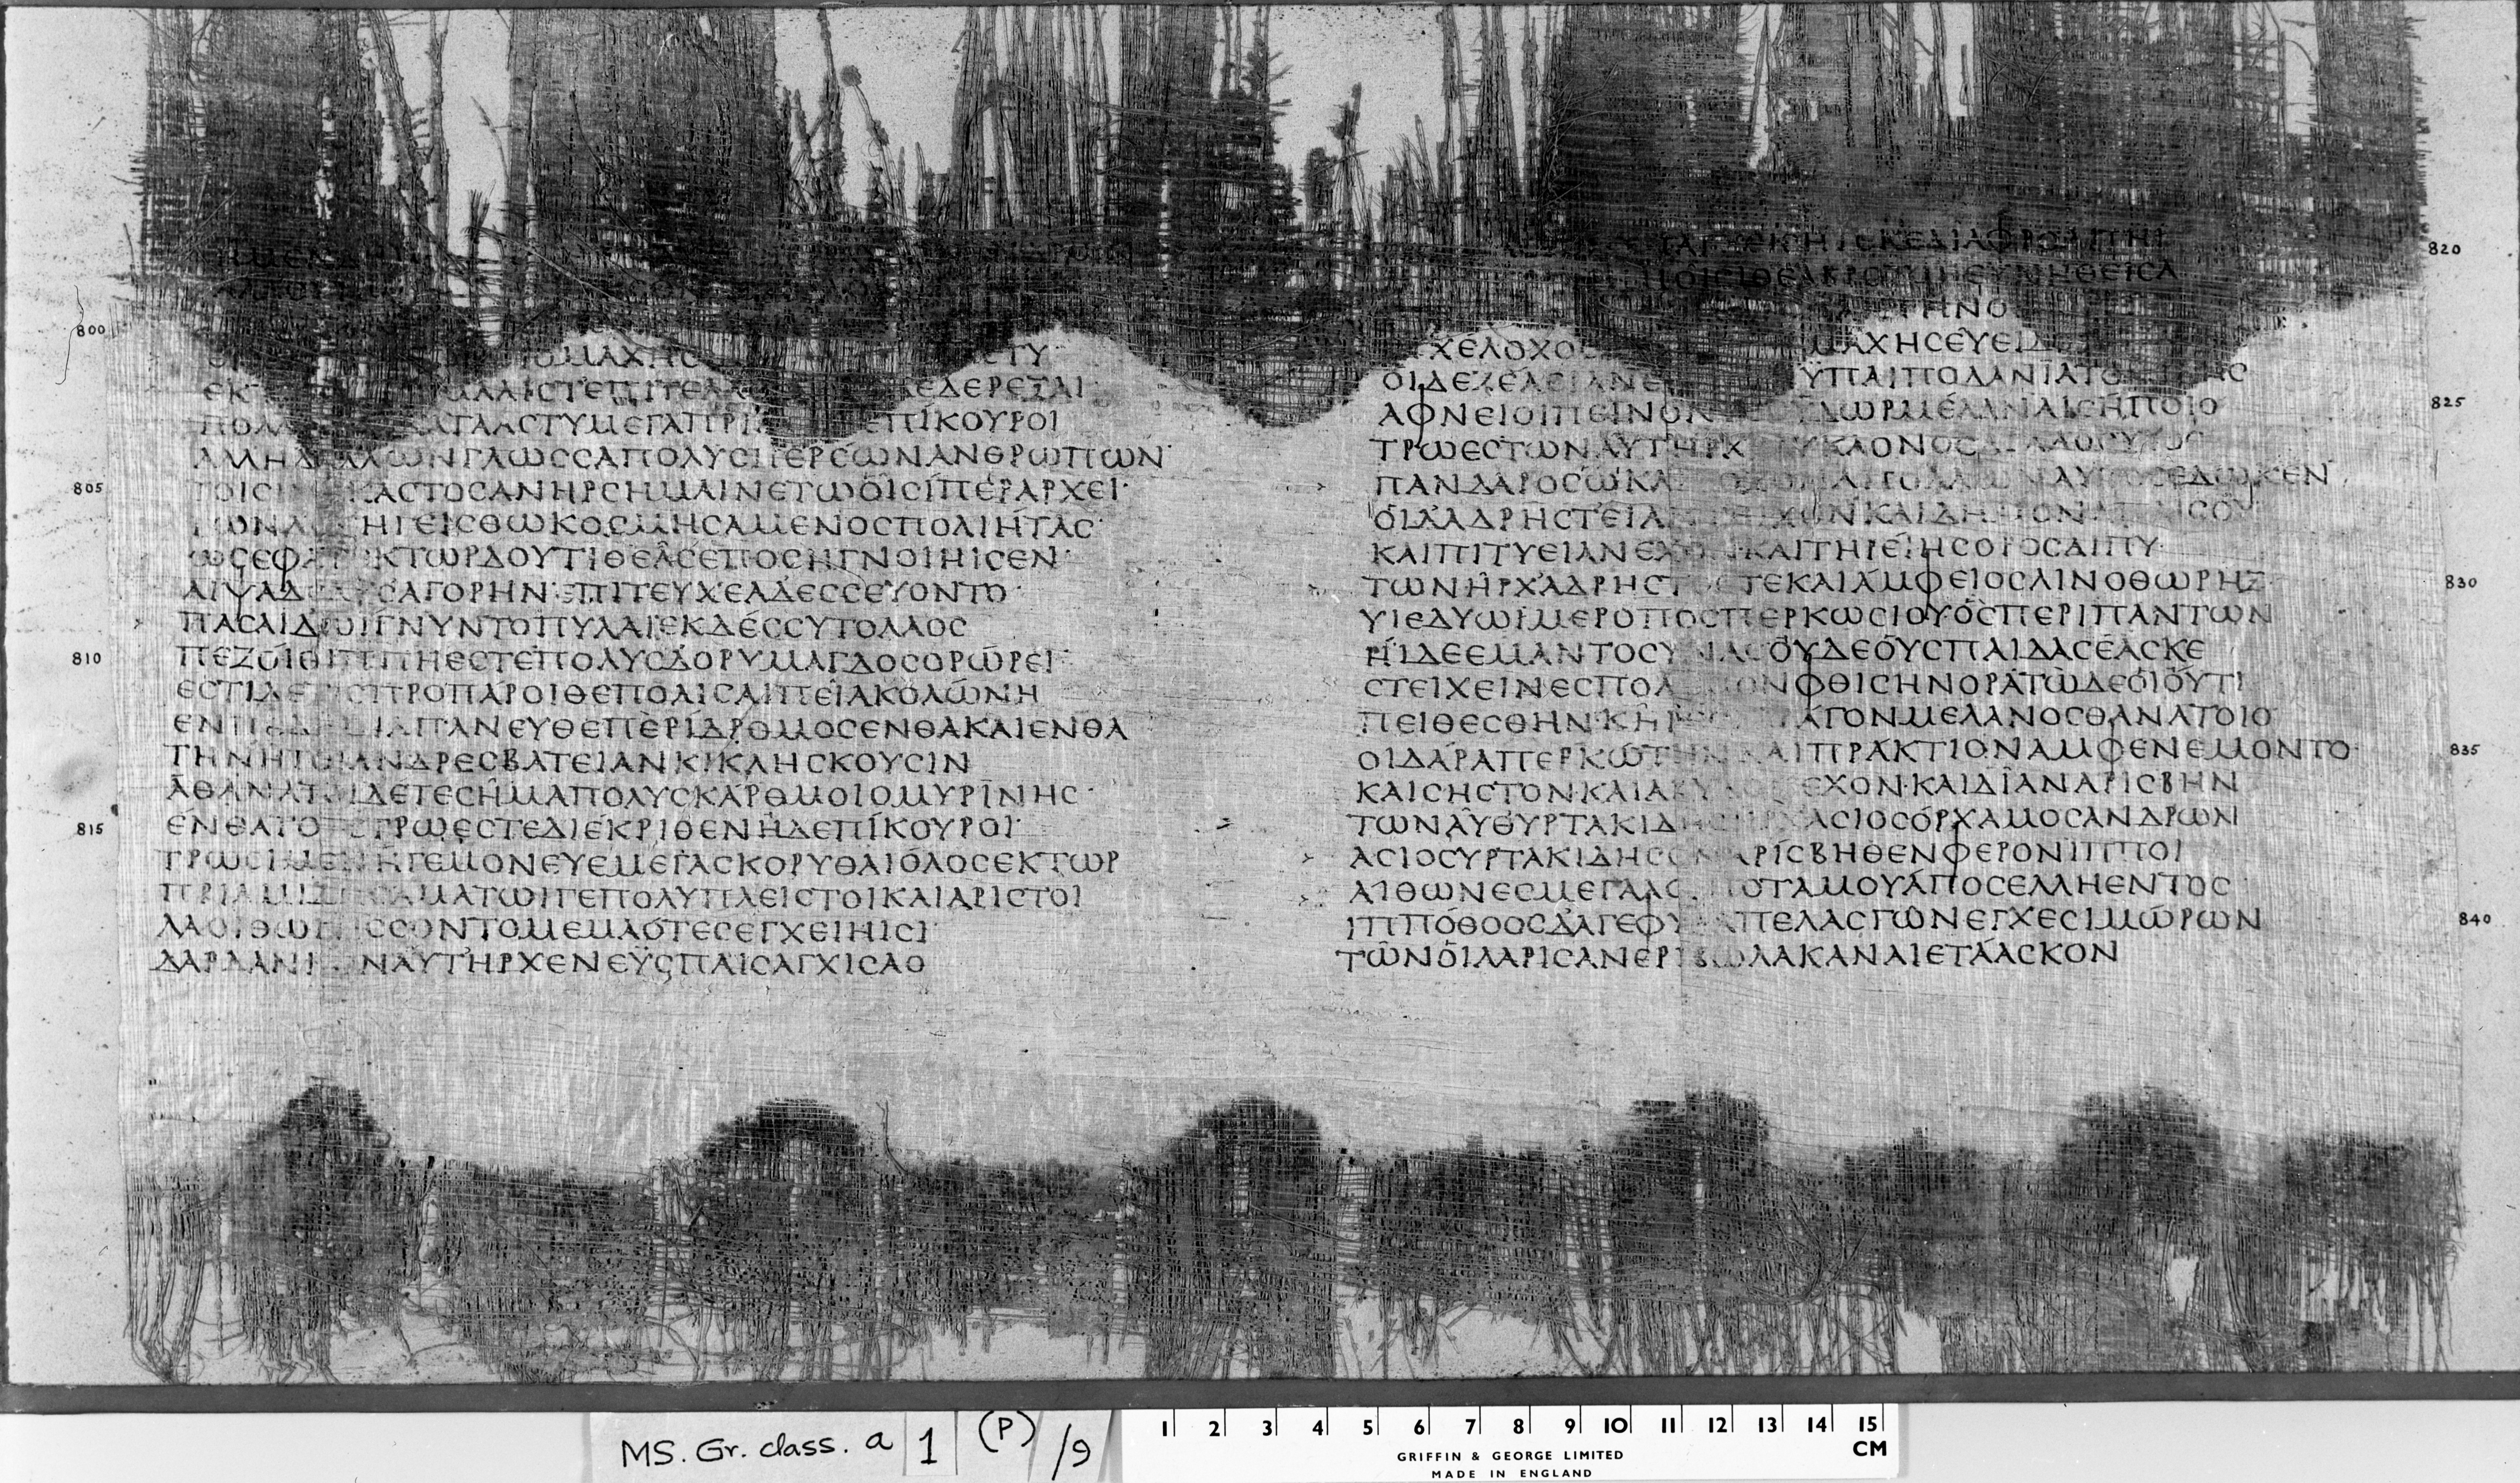 800
ΜΑΧΗC CΤΥ
ΕΚ ΜΑΛΙCΤΕΠΙΤΕΛ ΕΔΕΡΕΞΑΙ
ΠΟΛ ΚΑΤΑΑCΤΥΜΕΓΑΠΡΙ ΕΠΙΚΟΥΡΟΙ
ΑΛΛΗΔ ΑΛΛΩΝΓΛΩCCΑΠΟΛΥCΠΕΡΕΩΝΑΝΘΡΩΠΩΝ
805 ΤΟΙCΙ ΚΑCΤΟCΑΝΗΡCΗΜΑΙΝΕΤΩΟΙCΙΠΕΡΑΡΧΕΙ
ΤΩΝΔ ΗΓΕΙCΘΩΚΟCΜΗCΑΜΕΝΟCΠΟΛΙΗΤΑC
ΩCΕΦΑ ΚΤΩΡΔΟΥΤΙΘΕΑCΕΠΟCΗΓΝΟΙΗCΕΝ
ΑΙΨΑΔ CΑΓΟΡΗΝ ΕΠΙΤΕΥΧΕΑΔΕCCΕΥΟΝΤΟ
ΠΑCΑΙΔΩΙΓΝΥΝΤΟΠΥΛΑΙΕΚΔΕCCΥΤΟΛΑΟC
810 ΠΕΖΟΙΘΙΠΠΗΕCΤΕΠΟΛΥCΔΟΡΥΜΑΓΔΟCΟΡΩΡΕΙ
ΕCΤΙΔΕ ΠΡΟΠΑΡΟΙΘΕΠΟΛΙCΑΙΠΕΙΑΚΟΛΩΝΗ
ΕΝΠ ΑΠΑΝΕΥΘΕΠΕΡΙΔΡΟΜΟCΕΝΘΑΚΑΙΕΝΘΑ
ΤΗΝΗΤΟΙΑΝΔΡΕCΒΑΤΕΙΑΝΚΙΚΛΗCΚΟΥCΙΝ
ΑΘΑΝΑΤΟΙΔΕΤΕCΗΜΑΠΟΛΥCΚΑΡΘΜΟΙΟΜΥΡΙΝΗC
815 ΕΝΘΑΤΟΤΕΤΡΩΕCΤΕΔΙΕΚΡΙΘΕΝΗΔΕΠΙΚΟΥΡΟΙ
ΤΡΩCΙΜΕΝΗΓΕΜΟΝΕΥΕΜΕΓΑCΚΟΡΥΘΑΙΟΛΟCΕΚΤΩΡ
ΠΡΙΑΜΙΔ ΑΜΑΤΩΙΓΕΠΟΛΥΠΛΕΙCΤΟΙΚΑΙΑΡΙCΤΟΙ
ΛΑΟΙΘΩΡΗCCΟΝΤΟΜΕΜΑΟΤΕCΕΓΧΕΙΗΙCΙ
ΔΑΡΔΑΝΙ ΝΑΥΤΗΡΧΕΝΕΥCΠΑΙCΑΓΧΙCΑΟ
820 ΕΚΕΔΙΑΦΡΟΔΙΤΗ
ΘΕΑΒΡΟΤΩΙΕΥΝΗΘΕΙCΑ
ΗΝΟ
ΧΕΛΟΧΟ ΜΑΧΗCΕΥΕΙΔ
ΟΙΔΕΖΕΛΕΙΑΝΕ ΥΠΑΙΠΟΔΑΝΙΑΤΟ
825 ΑΦΝΕΙΟΙΠΕΙΝΟΝ ΥΔΩΡΜΕΛΑΝΑΙCΗΠΟΙΟ
ΤΡΩΕCΤΩΝΑΥΤΗΡΧ ΥΚΑΟΝΟCΑΓΛΑΟCΥΙΟC
ΠΑΝΔΑΡΟCΩΚΑΙ ΑΠΟΛΛΩΝΑΥΤΟCΕΔΩΚΕΝ
ΟΙΔΑΔΡΗCΤΕΙΑ ΧΟΝΚΑΙΔΗΜΟΝΑΠΑΙCΟΥ
ΚΑΙΠΙΤΥΕΙΑΝΕΧΟΝΚΑΙΤΗΡΕΙΗCΟΡΟCΑΙΠΥ
830 ΤΩΝΗΡΧΑΔΡΗCΤΟCΤΕΚΑΙΑΜΦΕΙΟCΛΙΝΟΘΩΡΗΞ
ΥΙΕΔΥΩΙΜΕΡΟΠΟCΠΕΡΚΩCΙΟΥΟCΠΕΡΙΠΑΝΤΩΝ
ΗΙΔΕΕΜΑΝΤΟCΥΝΑCΟΥΔΕΟΥCΠΑΙΔΑCΕΑCΚΕ
CΤΕΙΧΕΙΝΕCΠΟΛ ΟΝΦΘΙCΗΝΟΡΑΤΩΔΕΟΙΟΥΤΙ
ΠΕΙΘΕCΘΗΝΚΗΡ ΑΓΟΝΜΕΛΑΝΟCΘΑΝΑΤΟΙΟ
835 ΟΙΔΑΡΑΠΕΡΚΩΤΗΝΚΑΙΠΡΑΚΤΙΟΝΑΜΦΕΝΕΜΟΝΤΟ
ΚΑΙCΗCΤΟΝΚΑΙΑΒΥΔΟ ΕΧΟΝΚΑΙΔΙΑΝΑΡΙCΒΗΝ
ΤΩΝΑΥΘΥΡΤΑΚΙΔΗCΗΡΧΑCΙΟCΟΡΧΑΜΟCΑΝΔΡΩΝ
ΑCΙΟCΥΡΤΑΚΙΔΗCΟΝΑΡΙCΒΗΘΕΝΦΕΡΟΝΙΠΠΟΙ
ΑΙΘΩΝΕCΜΕΓΑΛΟ ΠΟΤΑΜΟΥΑΠΟCΕΛΛΗΕΝΤΟC
840 ΙΠΠΟΘΟΟCΔΑΓΕΦΥΛΑΠΕΛΑCΓΩΝΕΓΧΕCΙΜΩΡΩΝ
ΤΩΝΟΙΛΑΡΙCΑΝΕΡΙΒΩΛΑΚΑΝΑΙΕΤΑΑCΚΟΝ
MS. Gr. class. a 1 (P) /9
1 2 3 4 5 6 7 8 9 10 11 12 13 14 15
CM
GRIFFIN & GEORGE LIMITED
MADE IN ENGLAND